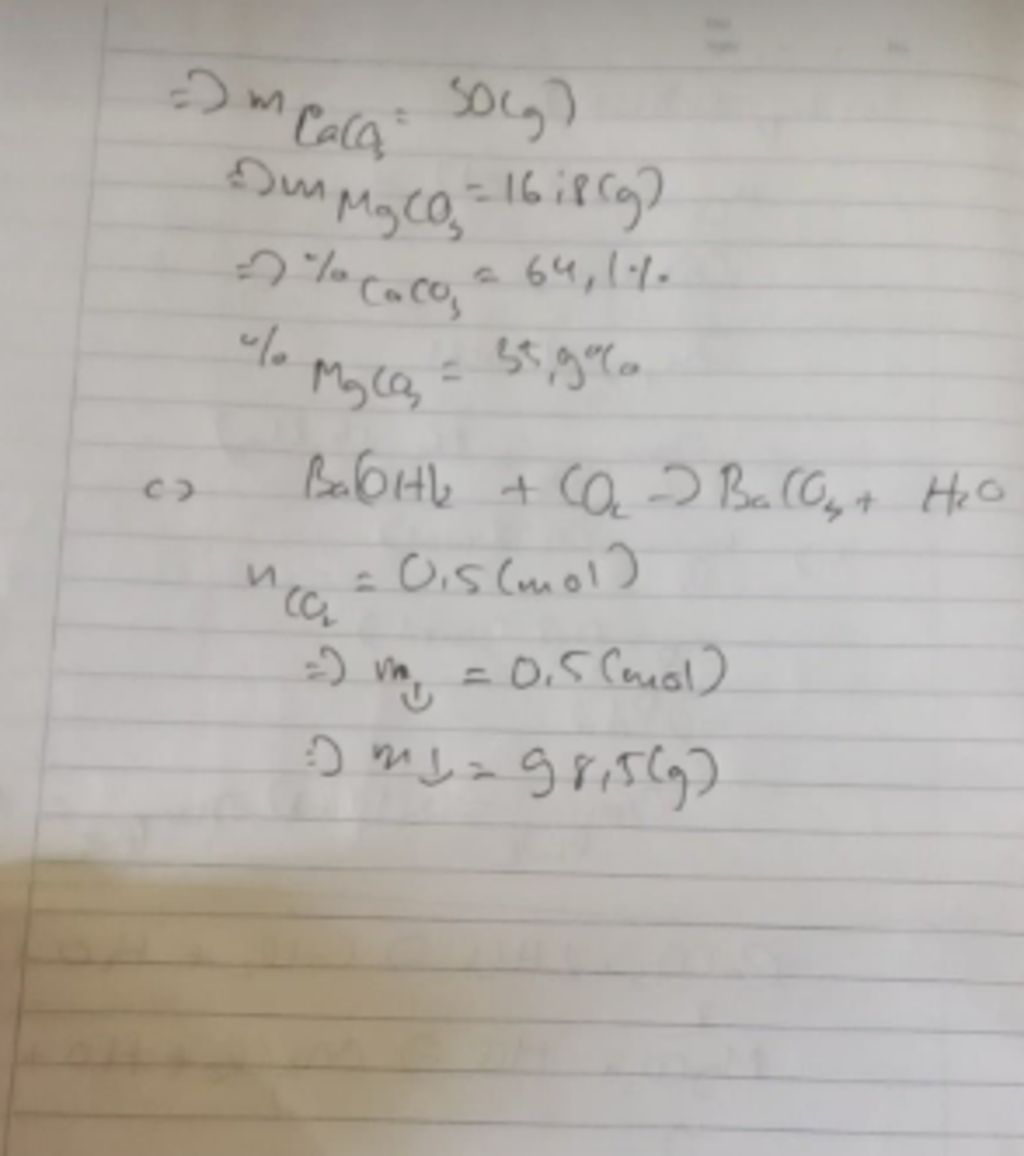 => m CaCO3 = 30(g)
=> m MgCO3 = 16,8(g)
=> % CaCO3 = 64,1%
% MgCO3 = 35,9%
c> Ba(OH)2 + CO2 -> BaCO3 + H2O
n CO2 = 0,5 (mol)
=> m↓ = 0,5 (mol)
=> m↓ = 98,5(g)